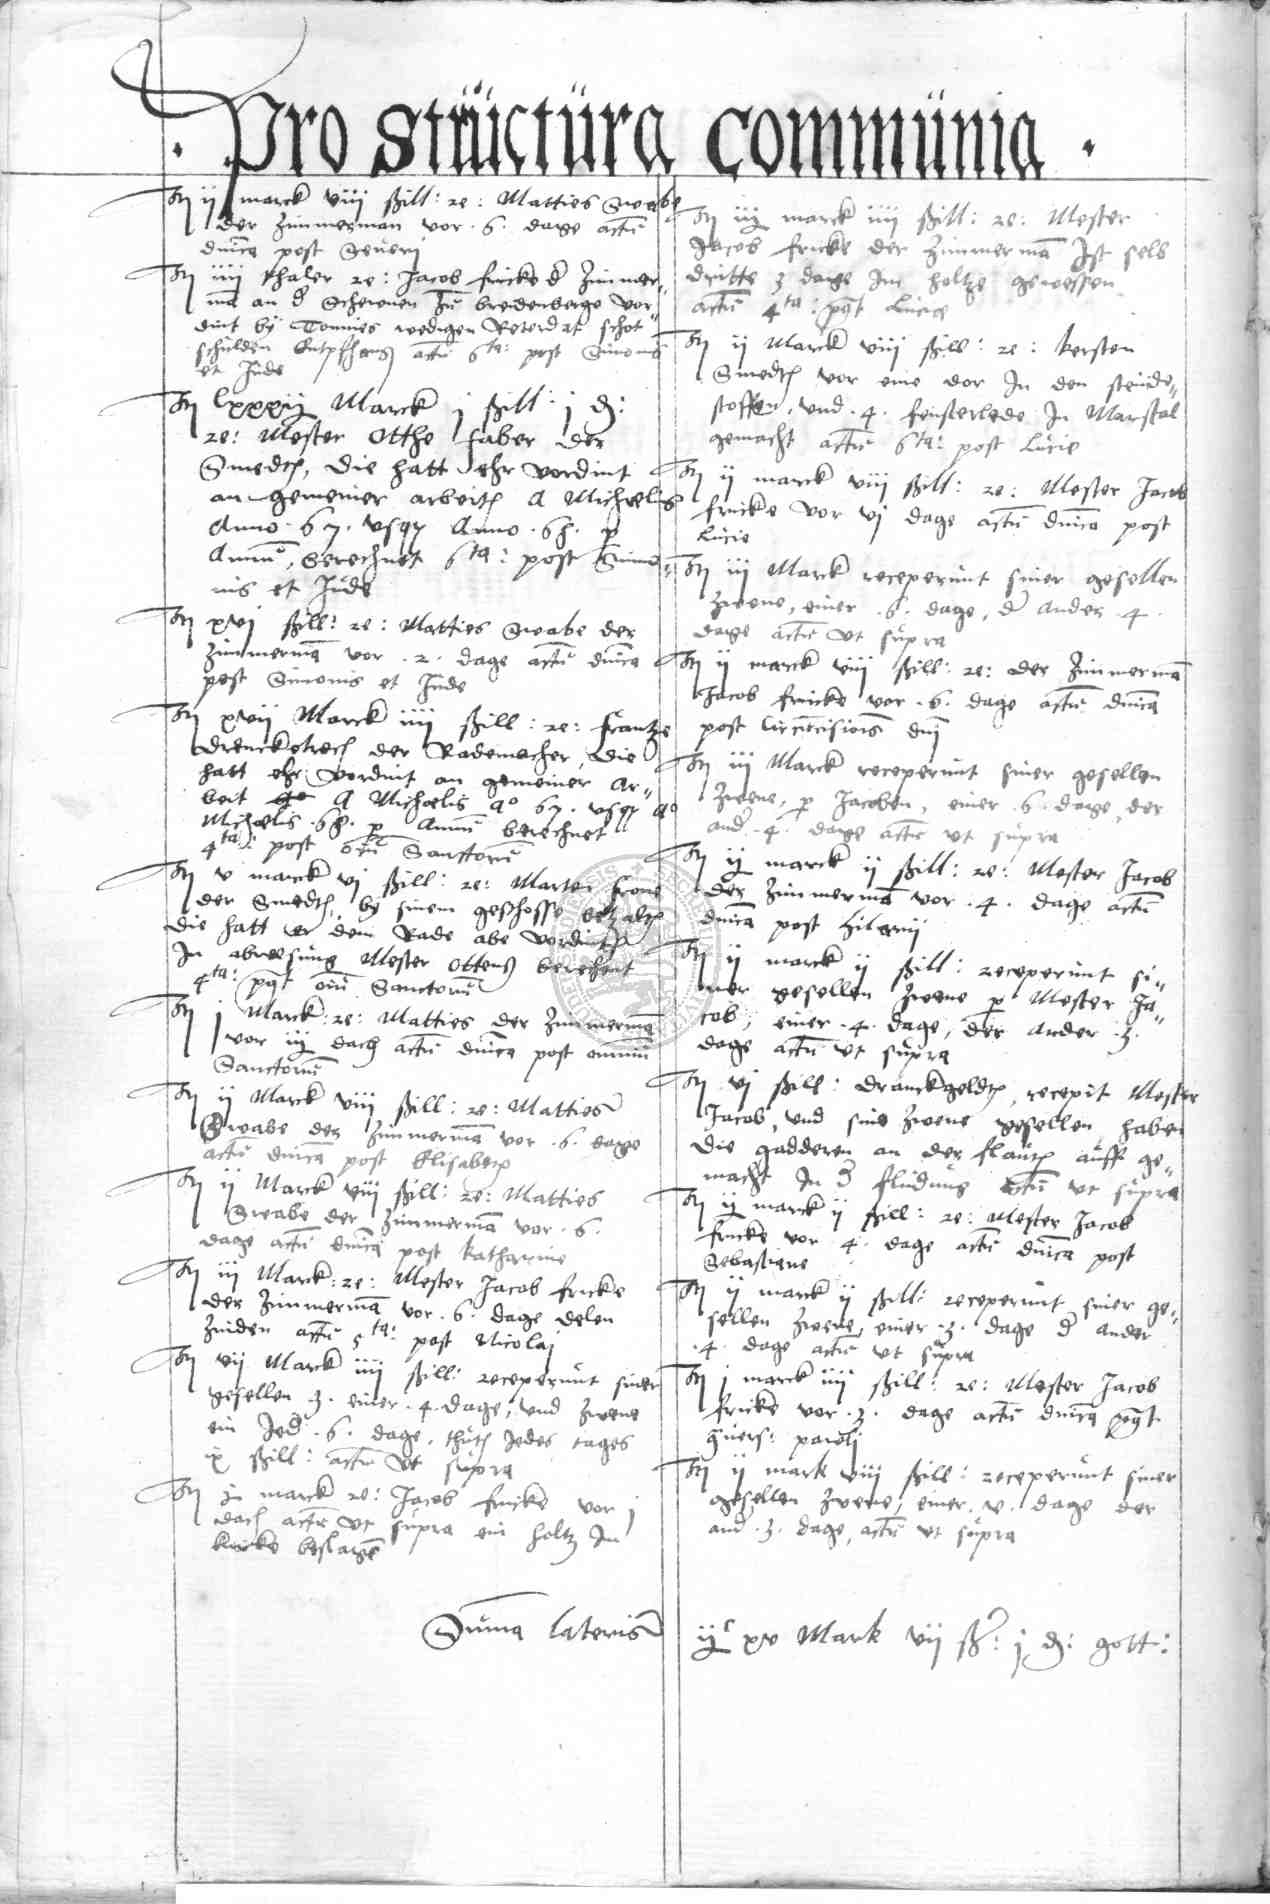 . Pro structura communia .
It ij marck viij ßill: re: Matties Swabe
der Zimmerman vor .6. dage actu
dnica post Severi
It iiij thaler re: Jacob fricke d Zimmer-
ma an d Schewnen zu bredenberge vor-
dint by Tonnies wedigen schot
schulden actu 6ta: post Simonis
et Jude
It lxxxij Marck j ßill: j d:
re: Mester Otthe faber der
Smedt, die hatt ehr vordint
an gemeiner arbeit A Michaelis
Anno .67. usqz Anno .68. p
Annu, berechnet 6ta: post Simo-
nis et Jude
It xvj ßill: re: Matties Swabe der
Zimmerma vor .2. dage actu dnica
post Simonis et Jude
It xvij Marck iiij ßill: re: frantze
der Rademacher, die
hatt ehr vordint an gemeiner Ar-
beit A Michaelis Ao 67. usqz Ao
Michaelis .68. p Annu berechnet
4ta: post oiu Sanctoru
It v marck vj ßill: re: Marten
der Smedt, by sinem geschosse betzalt
die hatt er dem Rade abe vordint
In Mester Ottens berechent
4ta: post oiu Sanctoru
It j Marck: re: Matties der Zimmerma
vor iij dach actu dnica post omniu
Sanctoru
It ij Marck viij ßill: re: Matties
Swabe der Zimmerma vor .6. dage
actu dnica post Elisabet
It ij Marck viij ßill: re: Matties
Swabe der Zimmerma vor .6.
dage actu dnica post katharine
It iij Marck: re: Mester Jacob fricke
der Zimmerma vor .6. dage delen
actu 5ta: post Nicolaj
It vij Marck iiij ßill: receperunt siner
gesellen .3. einer .4. dage, und zwene
ein Jed .6. dage, thut Jedes tages
ix ßill: actu ut supra
It marck re: Jacob fricke vor j
dach actu ut supra ein holtz In
beslagen
It iij marck iiij ßill: re: Mester
Jacob fricke der Zimmerma Ist selb
dritte 3 dage Im holtze gewessen
actu 4ta: post Lucie
It ij Marck viij ßill: re: kersten
Smedt vor eine dor In den
und .4. fensterlede In Marstal
gemacht actu 6ta: post Lucie
It ij marck viij ßill: re: Mester Jacob
fricke vor vj dage actu dnica post
Lucie
It iij Marck receperunt siner gesellen
zwene, einer .6. dage, d Ander .4.
dage actu ut supra
It ij marck viij ßill: re: der Zimmerma
Jacob fricke vor .6. dage actu dnica
post Circucisionis dni
It iij Marck receperunt siner gesellen
zwene, p Jacoben, einer .6. dage, der
and .4. dage actu ut supra
It ij marck ij ßill: re: Mester Jacob
der Zimmerma vor .4. dage actu
dnica post hilarij
It ij marck ij ßill: receperunt si-
ner gesellen zwene p Mester Ja-
cob, einer .4. dage, der ander .3.
dage actu ut supra
It vj ßill: dranckgeldt, recepit Mester
Jacob, und sine zwene gesellen, haben
die gadderen an der auff ge-
macht In d actu ut supra
It ij marck ij ßill: re: Mester Jacob
fricke vor .4. dage actu dnica post
Sebastiane
It ij marck ij ßill: receperunt siner ge-
sellen zwene, einer .3. dage d ander
.4. dage actu ut supra
It j marck iiij ßill: re: Mester Jacob
fricke vor .3. dage actu dnica post
quers: paulj
It ij mark viij ßill: receperunt siner
gesellen zwene, einer .v. dage der
and .3. dage, actu ut supra
Suma lateris ijc xv Mark vij ß: j d: gott: